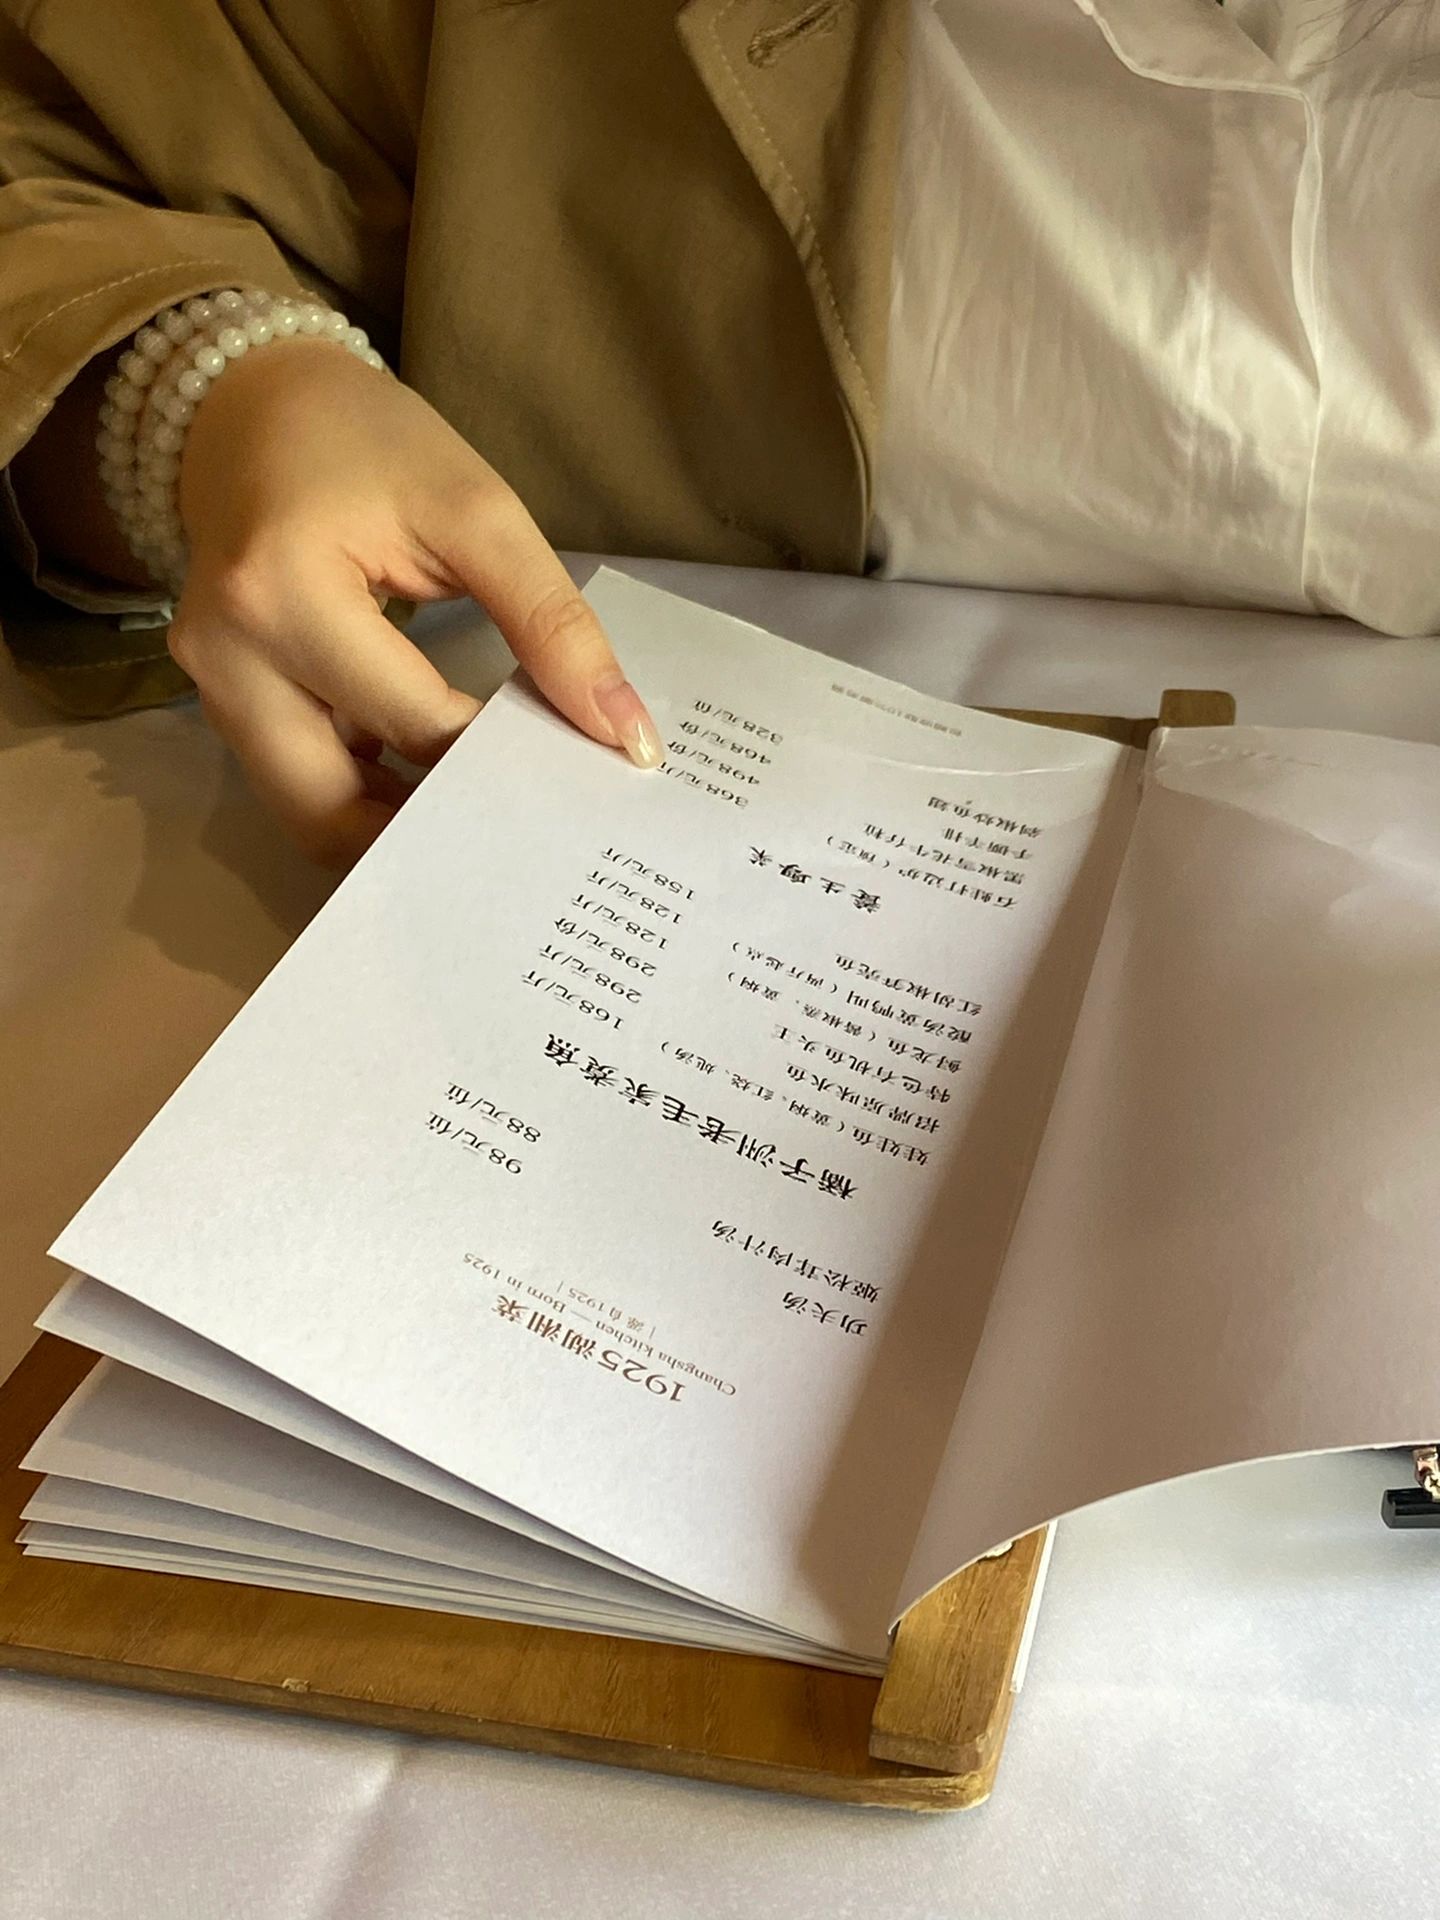 1925湖湘菜
| 源自1925 |
Changsha kitchen — Born in 1925
功夫汤 98元/位
姬松茸肉汁汤 88元/位
橘子洲老毛家煮魚
娃娃鱼（黄焖、红烧、炖汤） 168元/斤
招牌原味水鱼 298元/斤
特色有机鱼头王 298元/份
鲟龙鱼（酱椒蒸、黄焖） 128元/斤
酸汤黄鸭叫（两斤起点） 128元/斤
红胡椒笋壳鱼 158元/斤
養生尊菜
石蛙打边炉（预定） 368元/斤
黑椒雪花牛仔粒 498元/份
手撕羊排 468元/份
剁椒炒鱼翅 328元/位